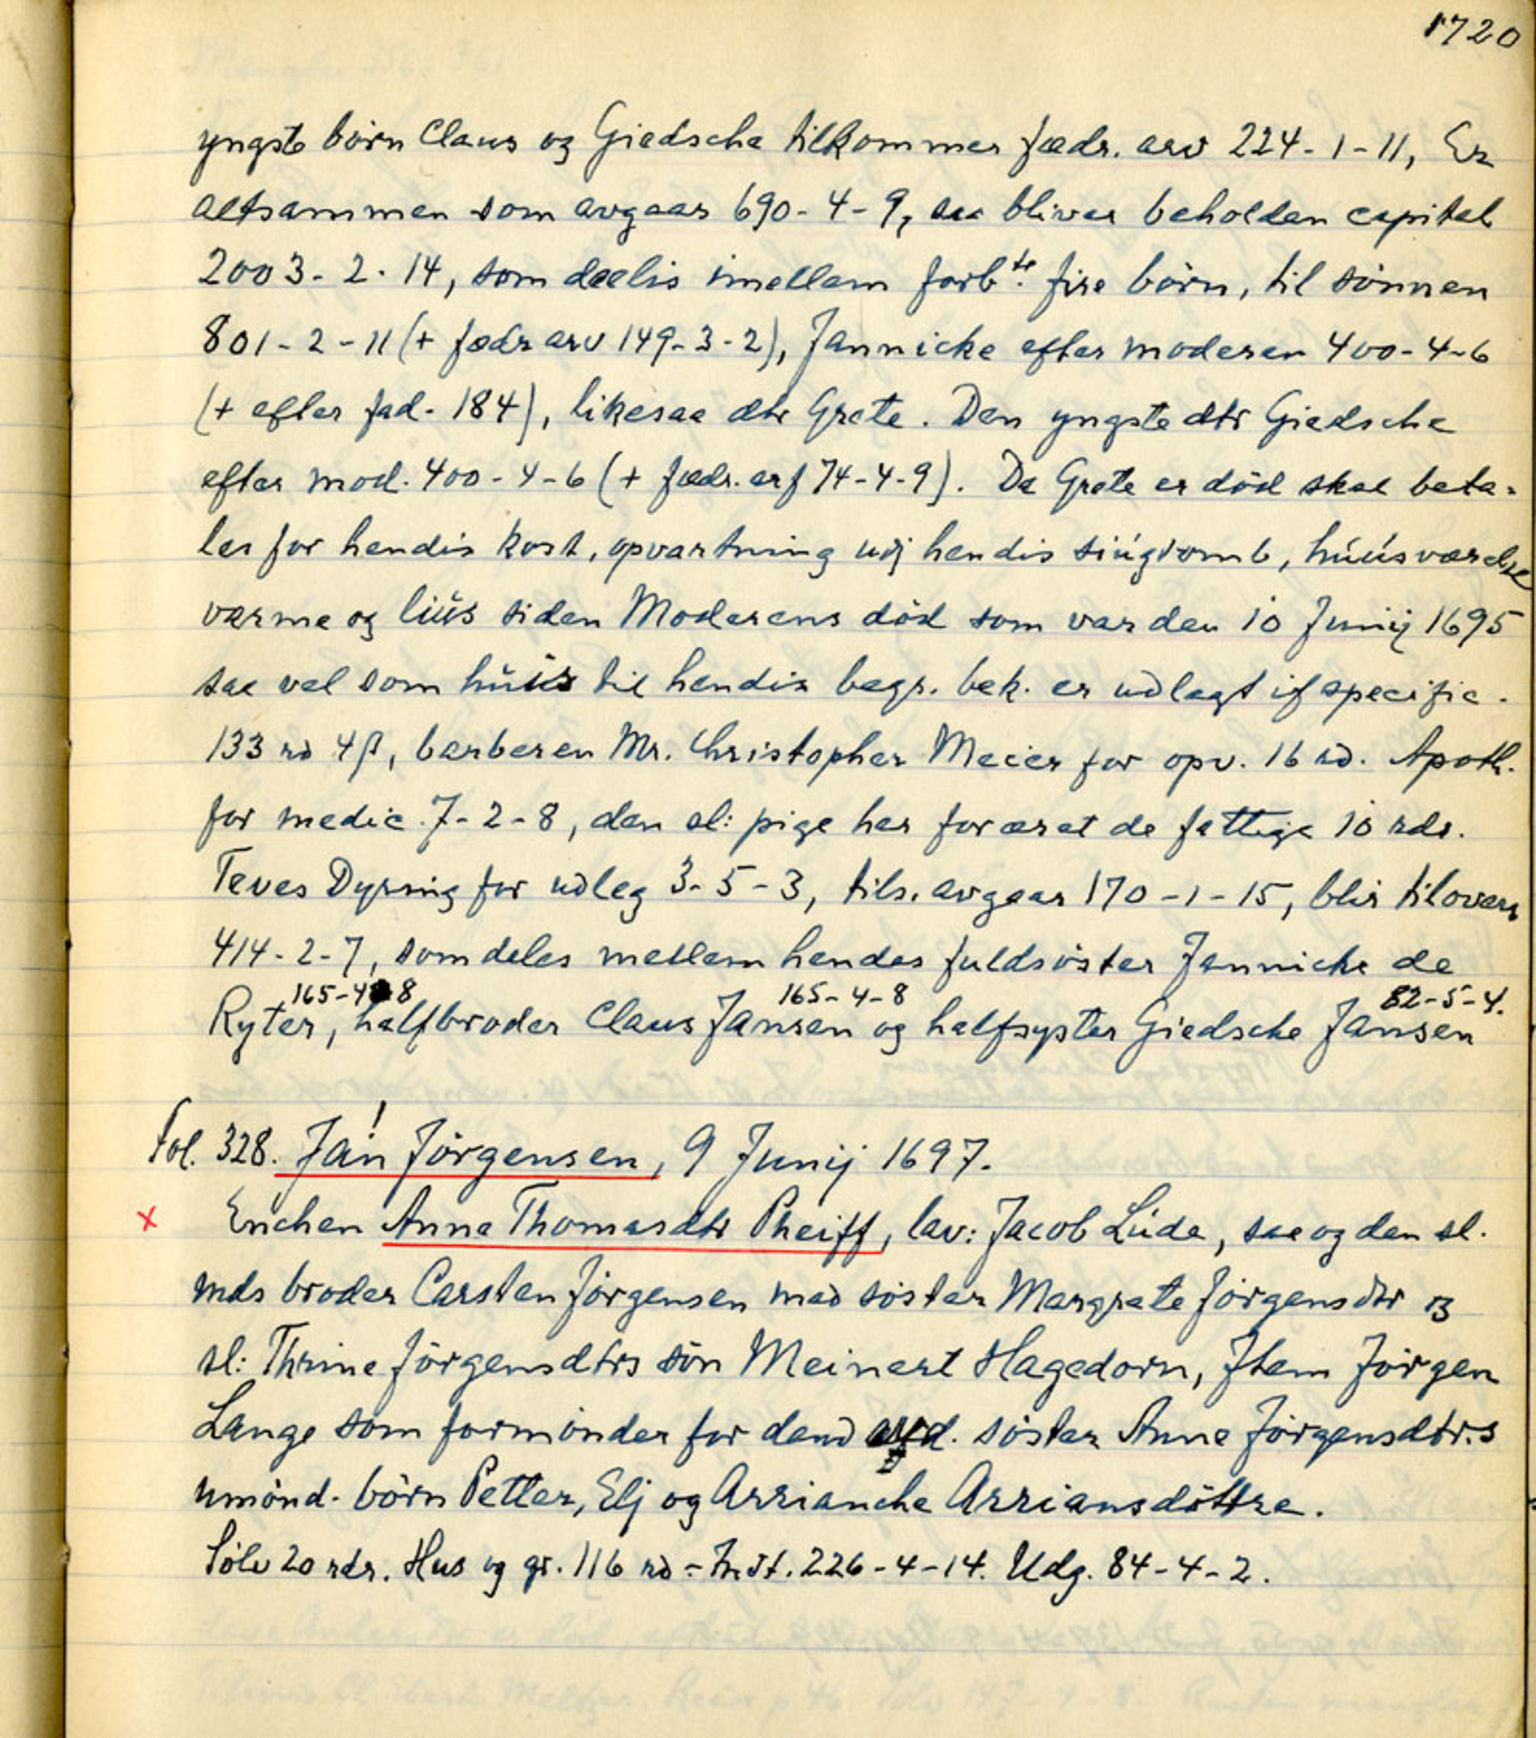 1720
yngste börn Claus og Giedsche tilkommer fædr. arv 224-1-11, Er
altsammen som avgaar 690-4-9, saa bliver beholden capital
2003-2-14, som deelis imellem forb.te fire börn, til sönnen
801-2-11 (+ fædr arv 149-3-2), Jannicke efter moderen 400-4-6
(+ efter fad. 184), likesaa dtr Grete. Den yngste dtr Giedsche
efter mod. 400-4-6 (+ fædr. arf 74-4-9). Da Grete er död skal beta-
les for hendis kost, opvartning udj hendis siugdomb, húús værelse
varme og liús siden Moderens död som var den 10 Junij 1695
saa vel som húis til hendis begr. bek. er udlagt if specific.
133 rd 4β, barberen Mr. Christopher Meier for opv. 16 rd. Apoth.
for medic. 7-2-8, den sl: pige har foræret de fattige 10 rdr.
Teves Dyring for udleg 3-5-3, tils. avgaar 170-1-15, blir tilovers
414-2-7, som deles mellem hendes fuldsöster Jannicke de
165-4-8 165-4-8 82-5-4.
Ryter, halfbroder Claus Jansen og halfsyster Giedsche Jansen
Fol. 328. Jan! Jörgensen, 9 Junij 1697.
x Enchen Anne Thomasdtr Pheiff, lav: Jacob Lúde, saa og den sl.
mds broder Carsten Jörgensen med söster Margrete Jörgensdtr og
sl: Thrine Jörgensdtrs sön Meinert Hagedorn, Jtem Jörgen
Lange som formönder for dend söster Anne Jörgensdtr.s
umönd. börn Petter, Elj og Arrianche Arriansdöttre.
Sölv 20 rdr. Hus og gr. 116 rd = 226-4-14. Udg. 84-4-2.